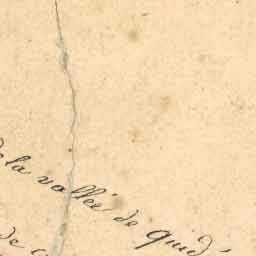 de la vallée de Quid
de